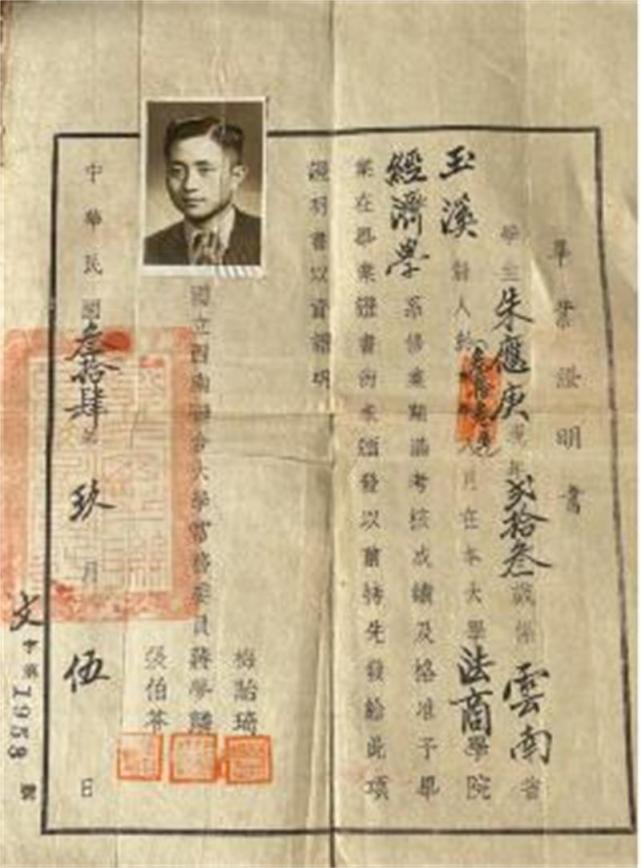 畢業證明書
學生朱應庚現年貳拾叁歲係雲南省
玉溪縣人於月在本大學法商學院
經濟學系修業期滿考核成績及格准予畢
業在畢業證書尚未頒發以前特先發給此項
證明書以資證明
梅貽琦
國立西南聯合大學常務委員蔣夢麟
張伯苓
中華民國叁拾肆年玖月伍日
文字第1958號